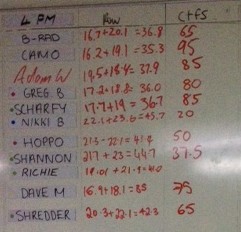 4 PM Row CTFS
B-RAD 16.7+20.1 = 36.8 65
CAMO 16.2+19.1 = 35.3 95
Adam W 19.5+18.4 = 37.9 85
• GREG. B 17.2+18.8 = 36.0 80
• SCHARFY 17.7+19 = 36.7 85
• NIKKI B 22.1+23.6 = 45.7 20
• HOPPO 21.3-22.1 = 50
• SHANNON 21.7+23 = 44.7 37.5
• RICHIE
DAVE M 16.9+18.1 = 35 75
• SHREDDER 20.3+22.1 = 42.3 65